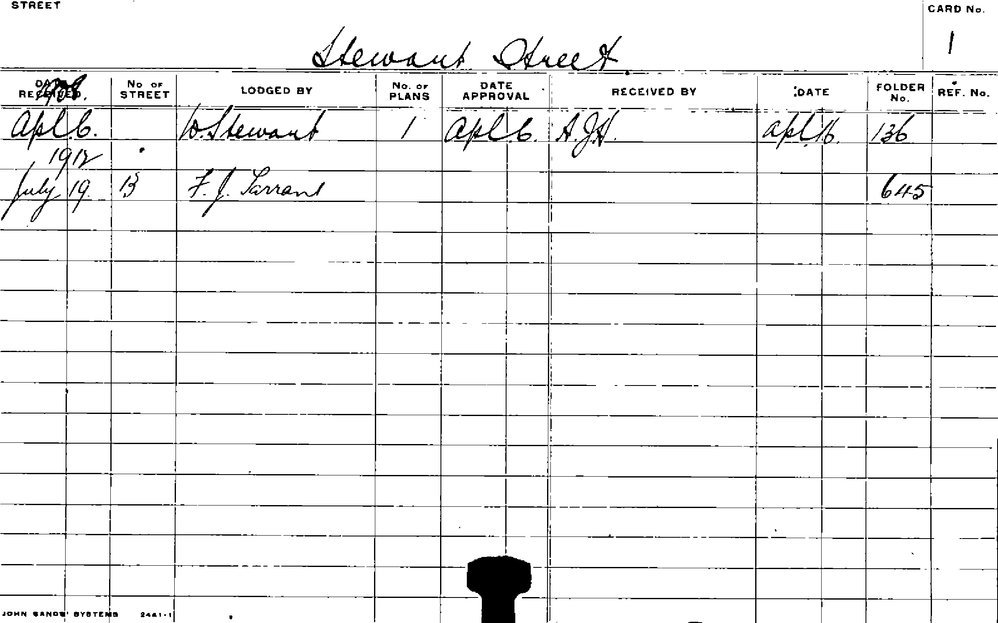 STREET
CARD No.
Stewart Street
1
DATE RECEIVED No OF STREET LODGED BY No. OF PLANS DATE APPROVAL RECEIVED BY DATE FOLDER No. REF. No.
Apl 6. W. Stewart 1 Apl 6. A.J.H. Apl. 16. 136
1912
July 19. 13 F. J. Tarrant 645
JOHN SANDS' SYSTEMS 2441-1